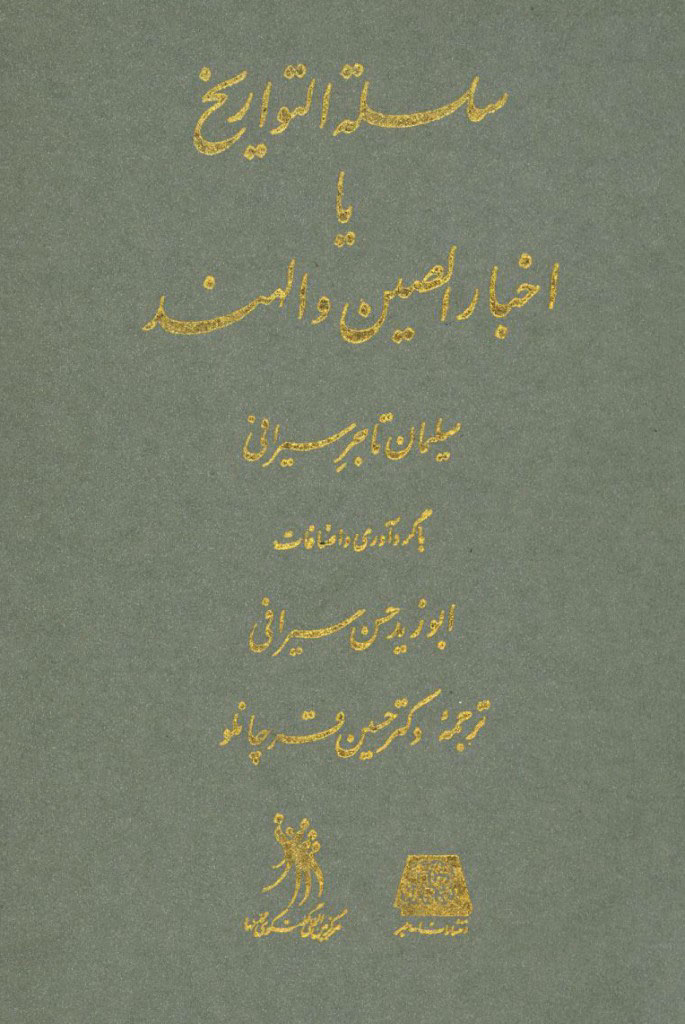 سلسلة التواریخ
یا
اخبار الصین و الهند
سلیمان تاجرِ سیرافی
با گردآوری و اضافات
ابوزید حسن سیرافی
ترجمهٔ دکتر حسین قرچانلو
مرکز بین‌المللی گفتگوی تمدنها
انتشارات اساطیر